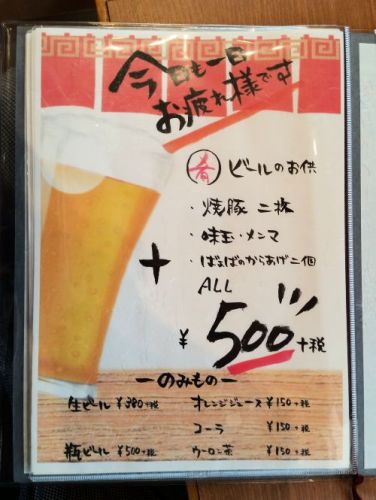 今日も一日
お疲れ様です
肴 ビールのお供
・焼豚 二枚
・味玉・メンマ
・ばぁばのからあげ二個
ALL
+
¥500+税
ーのみものー
生ビール ¥380+税 オレンジジュース ¥150+税
コーラ ¥150+税
瓶ビール ¥500+税 ウーロン茶 ¥150+税